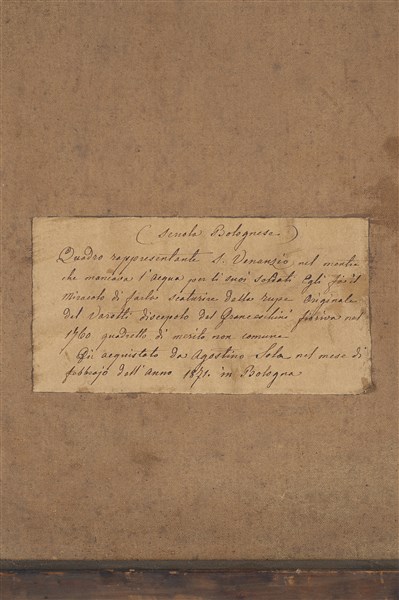 ( Scuola Bolognese )
Quadro rappresentante S. Venanzio nel mentre
che mancava l'acqua per li suoi soldati Egli fà il
Miracolo di farla scaturire dalla rupe Originale
del Varotti discepolo del Franceschini fioriva nel
1760 quadretto di merito non comune
Fù acquistato da Agostino Sola nel mese di
febbrajo dell'anno 1871. in Bologna